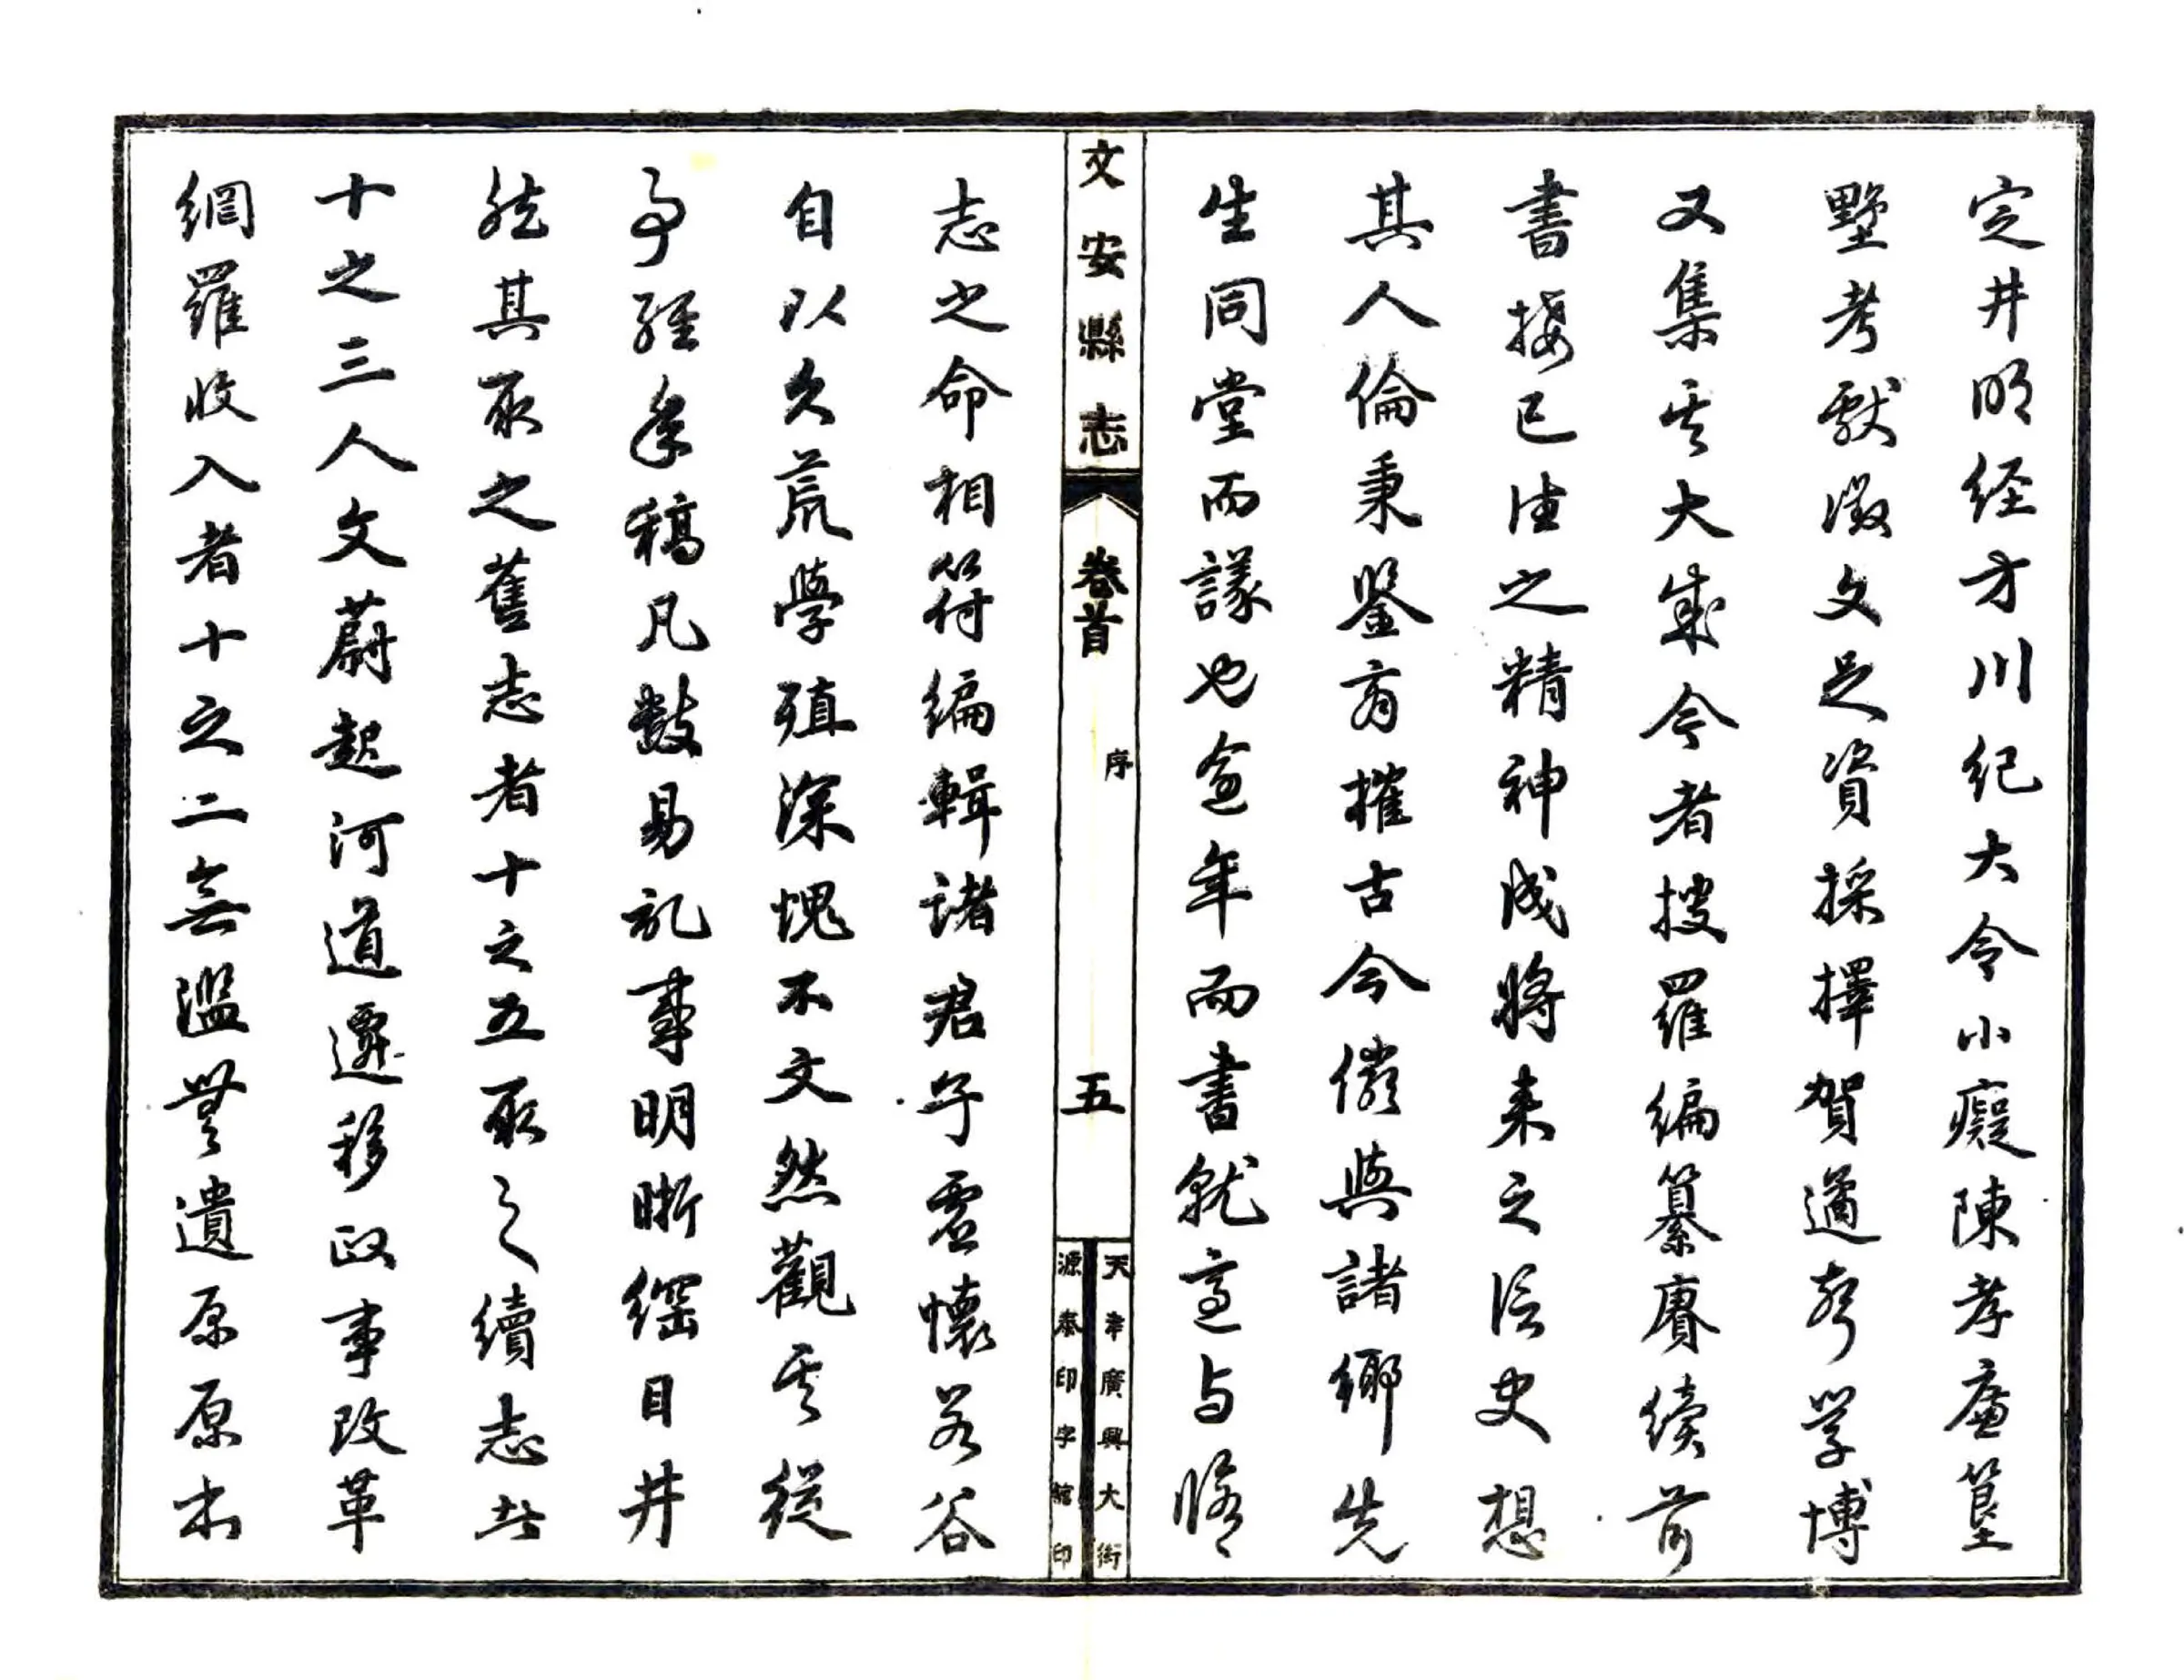 定井明经方川纪大令小癡陳孝廉篁
墅考獻徵文足資採擇賀邁都学博
又集其大成今者搜羅编纂賡续前
書接已往之精神成將来之信史想
其人倫秉鑒肯摧古今儻與諸鄉先
生同堂而議也逾年而書就适与修
文安縣志
卷首
序
五
天津廣興大街
源泰印字館印
志之命相符编輯诸君子虚懷若谷
自以久荒學殖深愧不文然觀其從
事經年稿凡數易記事明晰纲目井
然其取之舊志者十之五取之續志者
十之三人文蔚起河道遷移政事改革
網羅收入者十之二無濫無遺原原本